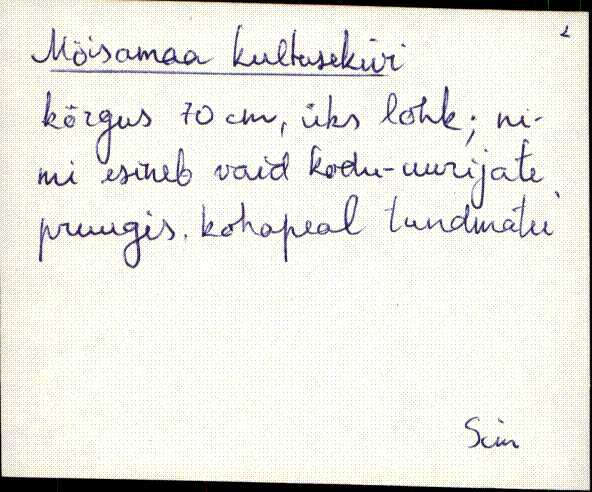 2
Mõisamaa kultusekivi
kõrgus 70 cm, üks lohk; ni-
mi esineb vaid kodu-uurijate
pruugis. kohapeal tundmatu
Sim